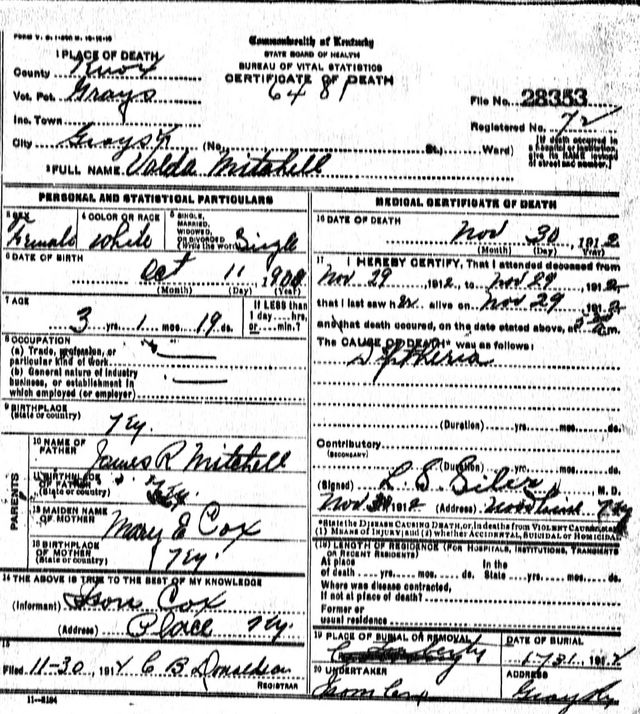 FORM V. S. 1-
Commonwealth of Kentucky
STATE BOARD OF HEALTH
BUREAU OF VITAL STATISTICS
CERTIFICATE OF DEATH
6481
1 PLACE OF DEATH
County Knox
Vot. Pct. Grays
Inc. Town
City Grays Ky (No. St., Ward)
File No. 28353
Registered No. 72
[If death occurred in a hospital or institution, give its NAME instead of street and number.]
2 FULL NAME Valda Mitchell
PERSONAL AND STATISTICAL PARTICULARS
3 SEX Female
4 COLOR OR RACE White
5 SINGLE, MARRIED, WIDOWED OR DIVORCED (Write the word) Single
6 DATE OF BIRTH
Oct 11
(Month) (Day) (Year)
7 AGE
3 yrs. 1 mos. 19 ds.
If LESS than 1 day....hrs. or....min.?
8 OCCUPATION
(a) Trade, profession, or particular kind of work
(b) General nature of industry business, or establishment in which employed (or employer)
9 BIRTHPLACE (State or country) Ky.
PARENTS
10 NAME OF FATHER James R Mitchell
11 BIRTHPLACE OF FATHER (State or country) Ky.
12 MAIDEN NAME OF MOTHER Mary E Cox
13 BIRTHPLACE OF MOTHER (State or country) Ky.
14 THE ABOVE IS TRUE TO THE BEST OF MY KNOWLEDGE
(Informant) Cox
(Address) Place Ky
15
Filed 11-30, 191 C B Donaldson
REGISTRAR
11-
MEDICAL CERTIFICATE OF DEATH
16 DATE OF DEATH
Nov 30, 1912
(Month) (Day) (Year)
17 I HEREBY CERTIFY, That I attended deceased from
Nov 29 1912, to Nov 29 1912
that I last saw her alive on Nov 29 1912
and that death occured, on the date stated above, at 3 m.
The CAUSE OF DEATH* was as follows:
Diptheria
(Duration) yrs. mos. ds.
Contributory
(SECONDARY)
(Duration) yrs. mos. ds.
(Signed) L. S. Siler M. D.
Nov 1912 (Address) Ky
*State the DISEASE CAUSING DEATH, or, in deaths from VIOLENT CAUSES, state (1) MEANS OF INJURY; and (2) whether ACCIDENTAL, SUICIDAL or HOMICIDAL
18) LENGTH OF RESIDENCE (FOR HOSPITALS, INSTITUTIONS, TRANSIENTS OR RECENT RESIDENTS)
At place of death yrs. mos. ds. In the State yrs. mos. ds.
Where was disease contracted, If not at place of death?
Former or usual residence
19 PLACE OF BURIAL OR REMOVAL
DATE OF BURIAL
191
20 UNDERTAKER
Cox
ADDRESS
Gray Ky